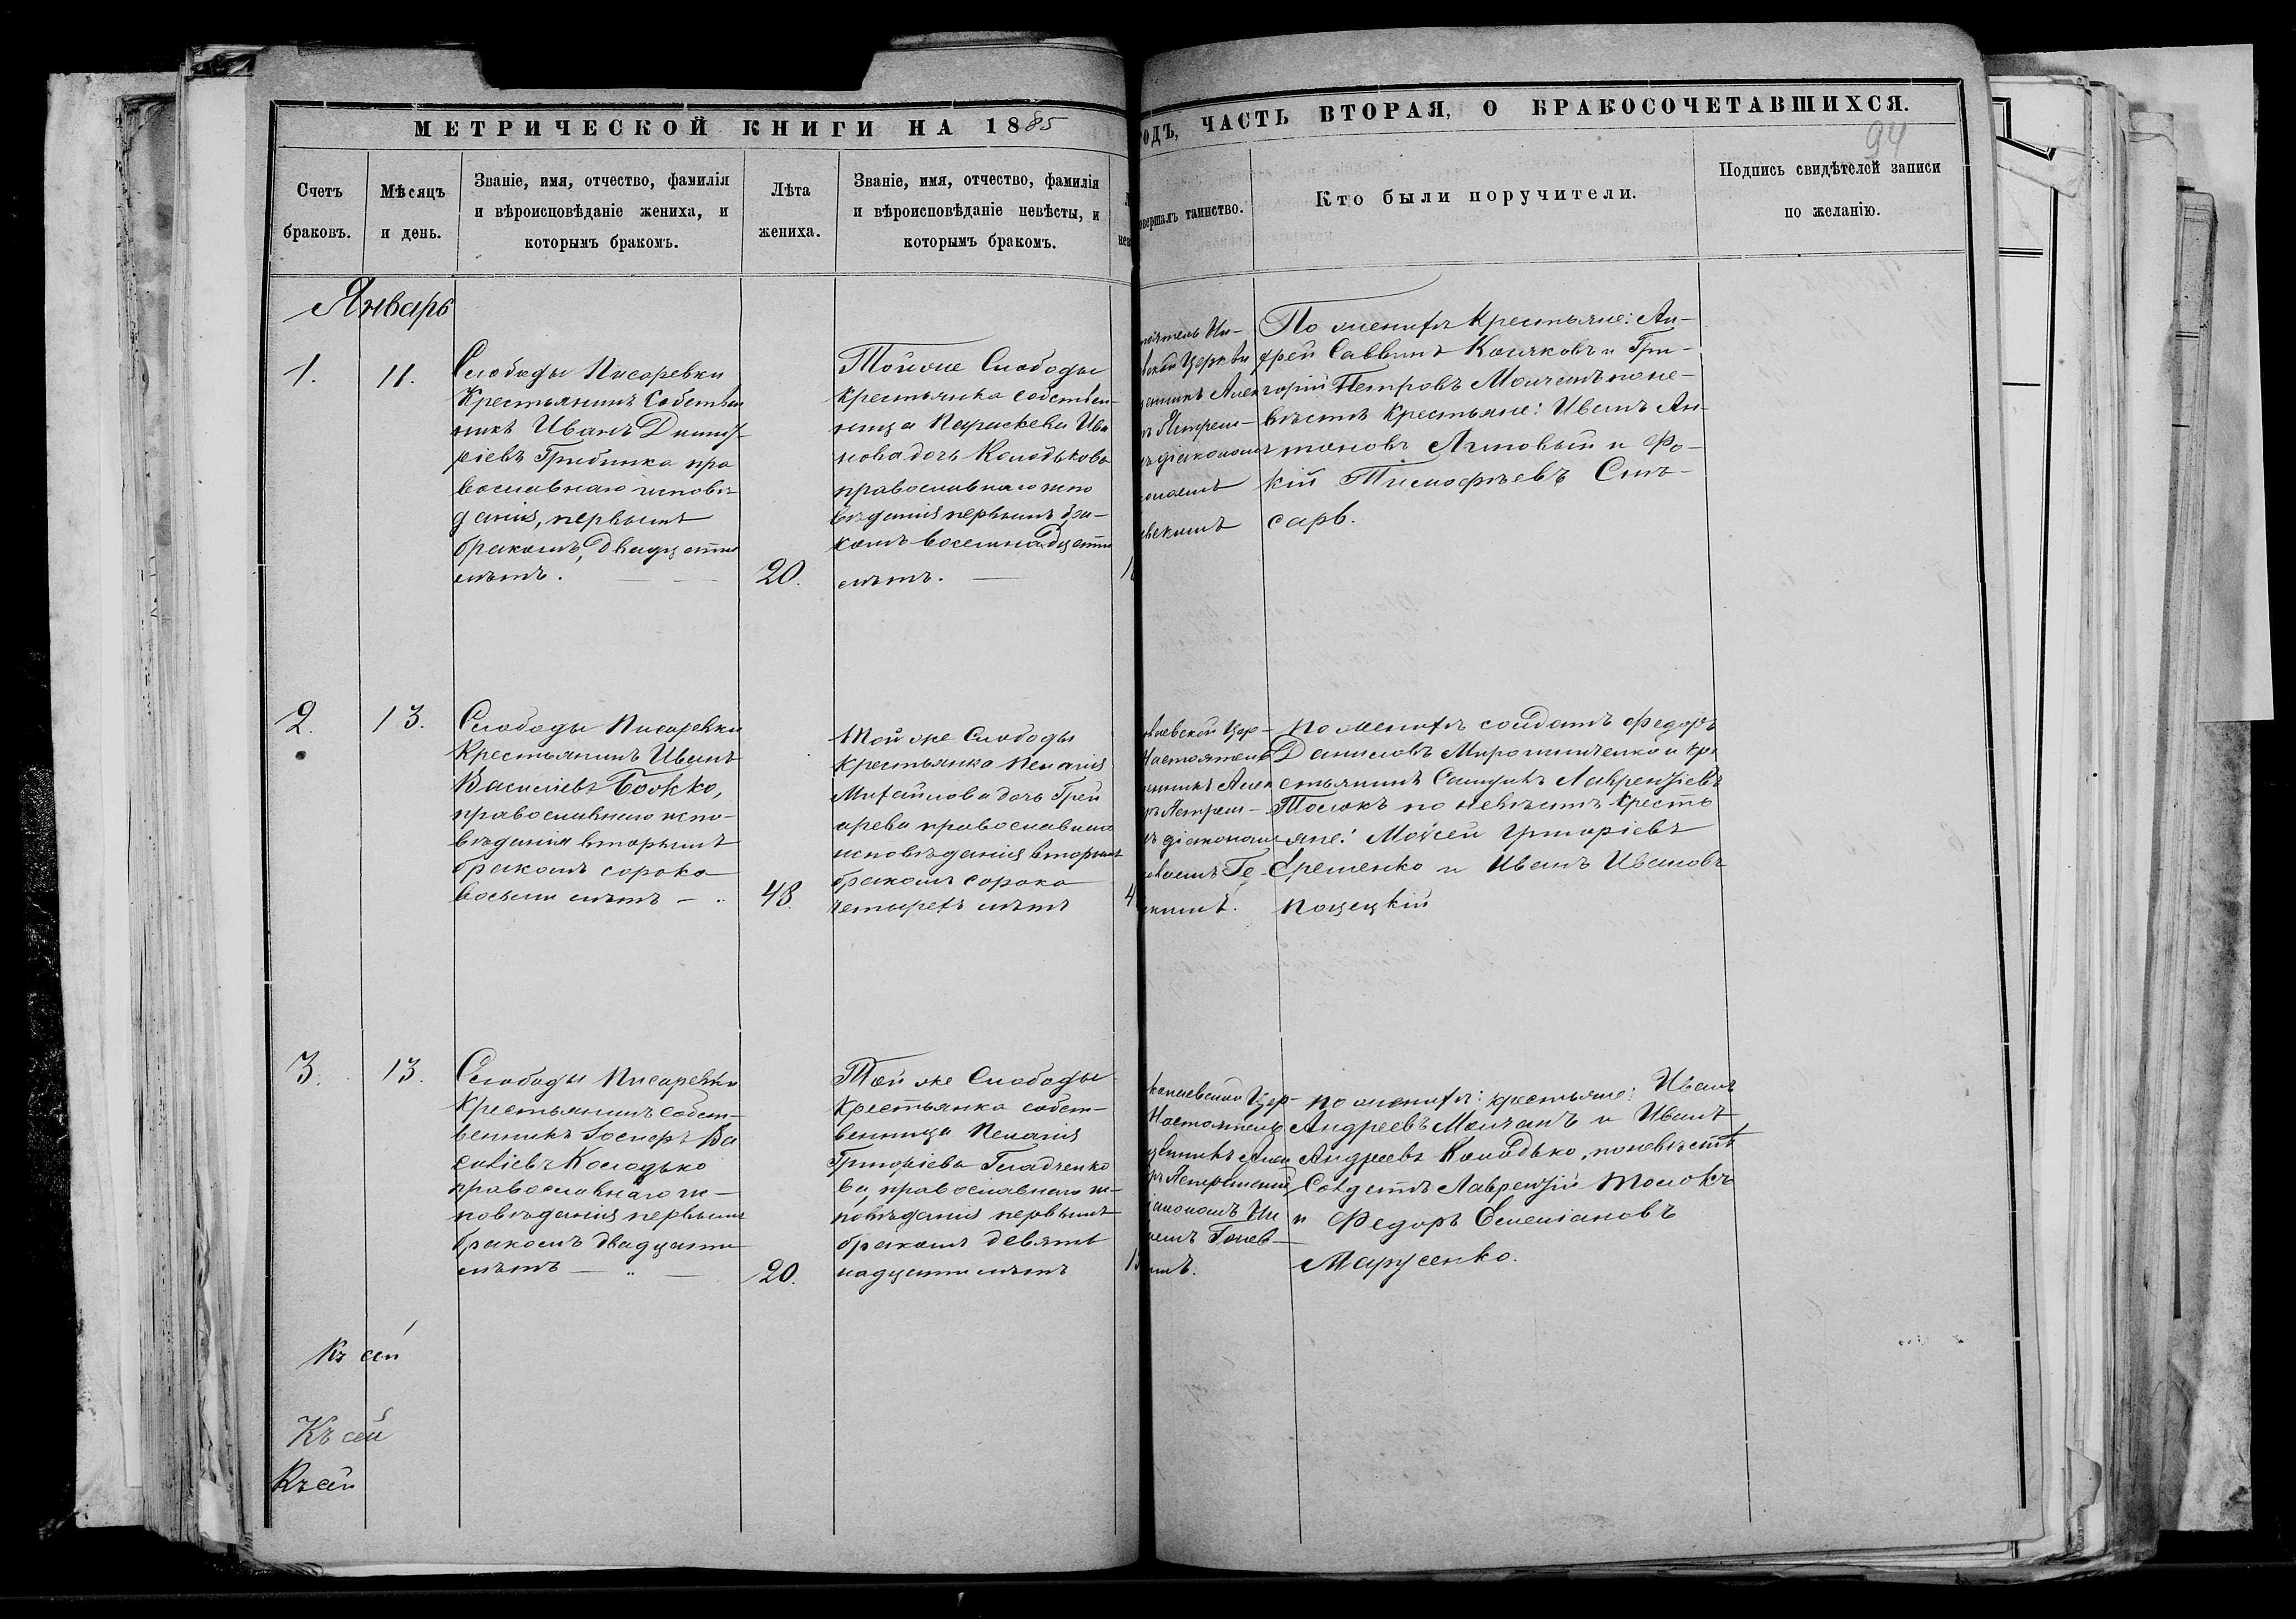 МЕТРИЧЕСКОЙ КНИГИ НА 1885
ОДЪ, ЧАСТЬ ВТОРАЯ, О БРАКОСОЧЕТАВШИХСЯ.
94
Счетъ
браковъ.
Мѣсяцъ
и день.
Званіе, имя, отчество, фамилія
и вѣроисповѣданіе жениха, и
которымъ бракомъ.
Лѣта
жениха.
Званіе, имя, отчество, фамилія
и вѣроисповѣданіе невѣсты, и
которымъ бракомъ.
совершалъ таинство.
Кто были поручители.
Подпись свидѣтелей записи
по желанію.
Январь
1.
11.
Слободы Писаревки
Крестьянинъ Собствен
никъ Иванъ Димит
ріевъ Грибинка пра
вославнаго исповѣ
данія, первымъ
бракомъ, двадцати
лѣтъ.
20.
Тойже Слободы
крестьянка собствен-
ница Параскева Ива
нова дочь Колодькова
православнаго испо
вѣданія первымъ бра-
комъ восемнадцати
лѣтъ.
Ни-
Церкви
Алек
Петров-
діакономъ
По женихѣ крестьяне: Ан-
дрей Саввинъ Косяковъ и Гри-
горій Петровъ Молчанъ по не-
вѣстѣ крестьяне: Иванъ Ан-
тоновъ и Фо-
кій Тимофѣевъ Слѣ-
сарь.
2.
13.
Слободы Писаревки
Крестьянинъ Иванъ
Васильевъ Божко,
православнаго испо-
вѣданія вторымъ
бракомъ сорока
восьми лѣтъ
48.
Той же Слободы
крестьянка Пелагія
Михайлова дочь
православнаго
исповѣданія вторымъ
бракомъ сорока
четырехъ лѣтъ
4
лаевской Цер-
Настоятель
Алек
діакономъ
По женихѣ солдатъ Федоръ
Даниловъ Мирошниченко и кре
стьянинъ Лаврентіевъ
Толокъ по невѣстѣ кресть
яне: Моисей Григоріевъ
Еременко и Иванъ Ивановъ
3.
13.
Слободы Писаревки
Крестьянинъ собст-
венникъ Іосифъ Ва
силіевъ Колодько
православнаго ис-
повѣданія первымъ
бракомъ двадцати
лѣтъ
20.
Той же Слободы
Крестьянка собст-
венница Пелагія
Григоріева Гладченко
ва, православнаго ис-
повѣданія первымъ
бракомъ девят
надцати лѣтъ
1
колаевской Цер-
Настоятель
по женихѣ: крестьяне: Иванъ
Андреевъ Молчанъ и Иванъ
Андреевъ Колодько, по невѣстѣ
Солдатъ Лаврентій Толокъ
и Федоръ Емеліановъ
Марусенко.
Къ сей
Къ сей
Къ сей